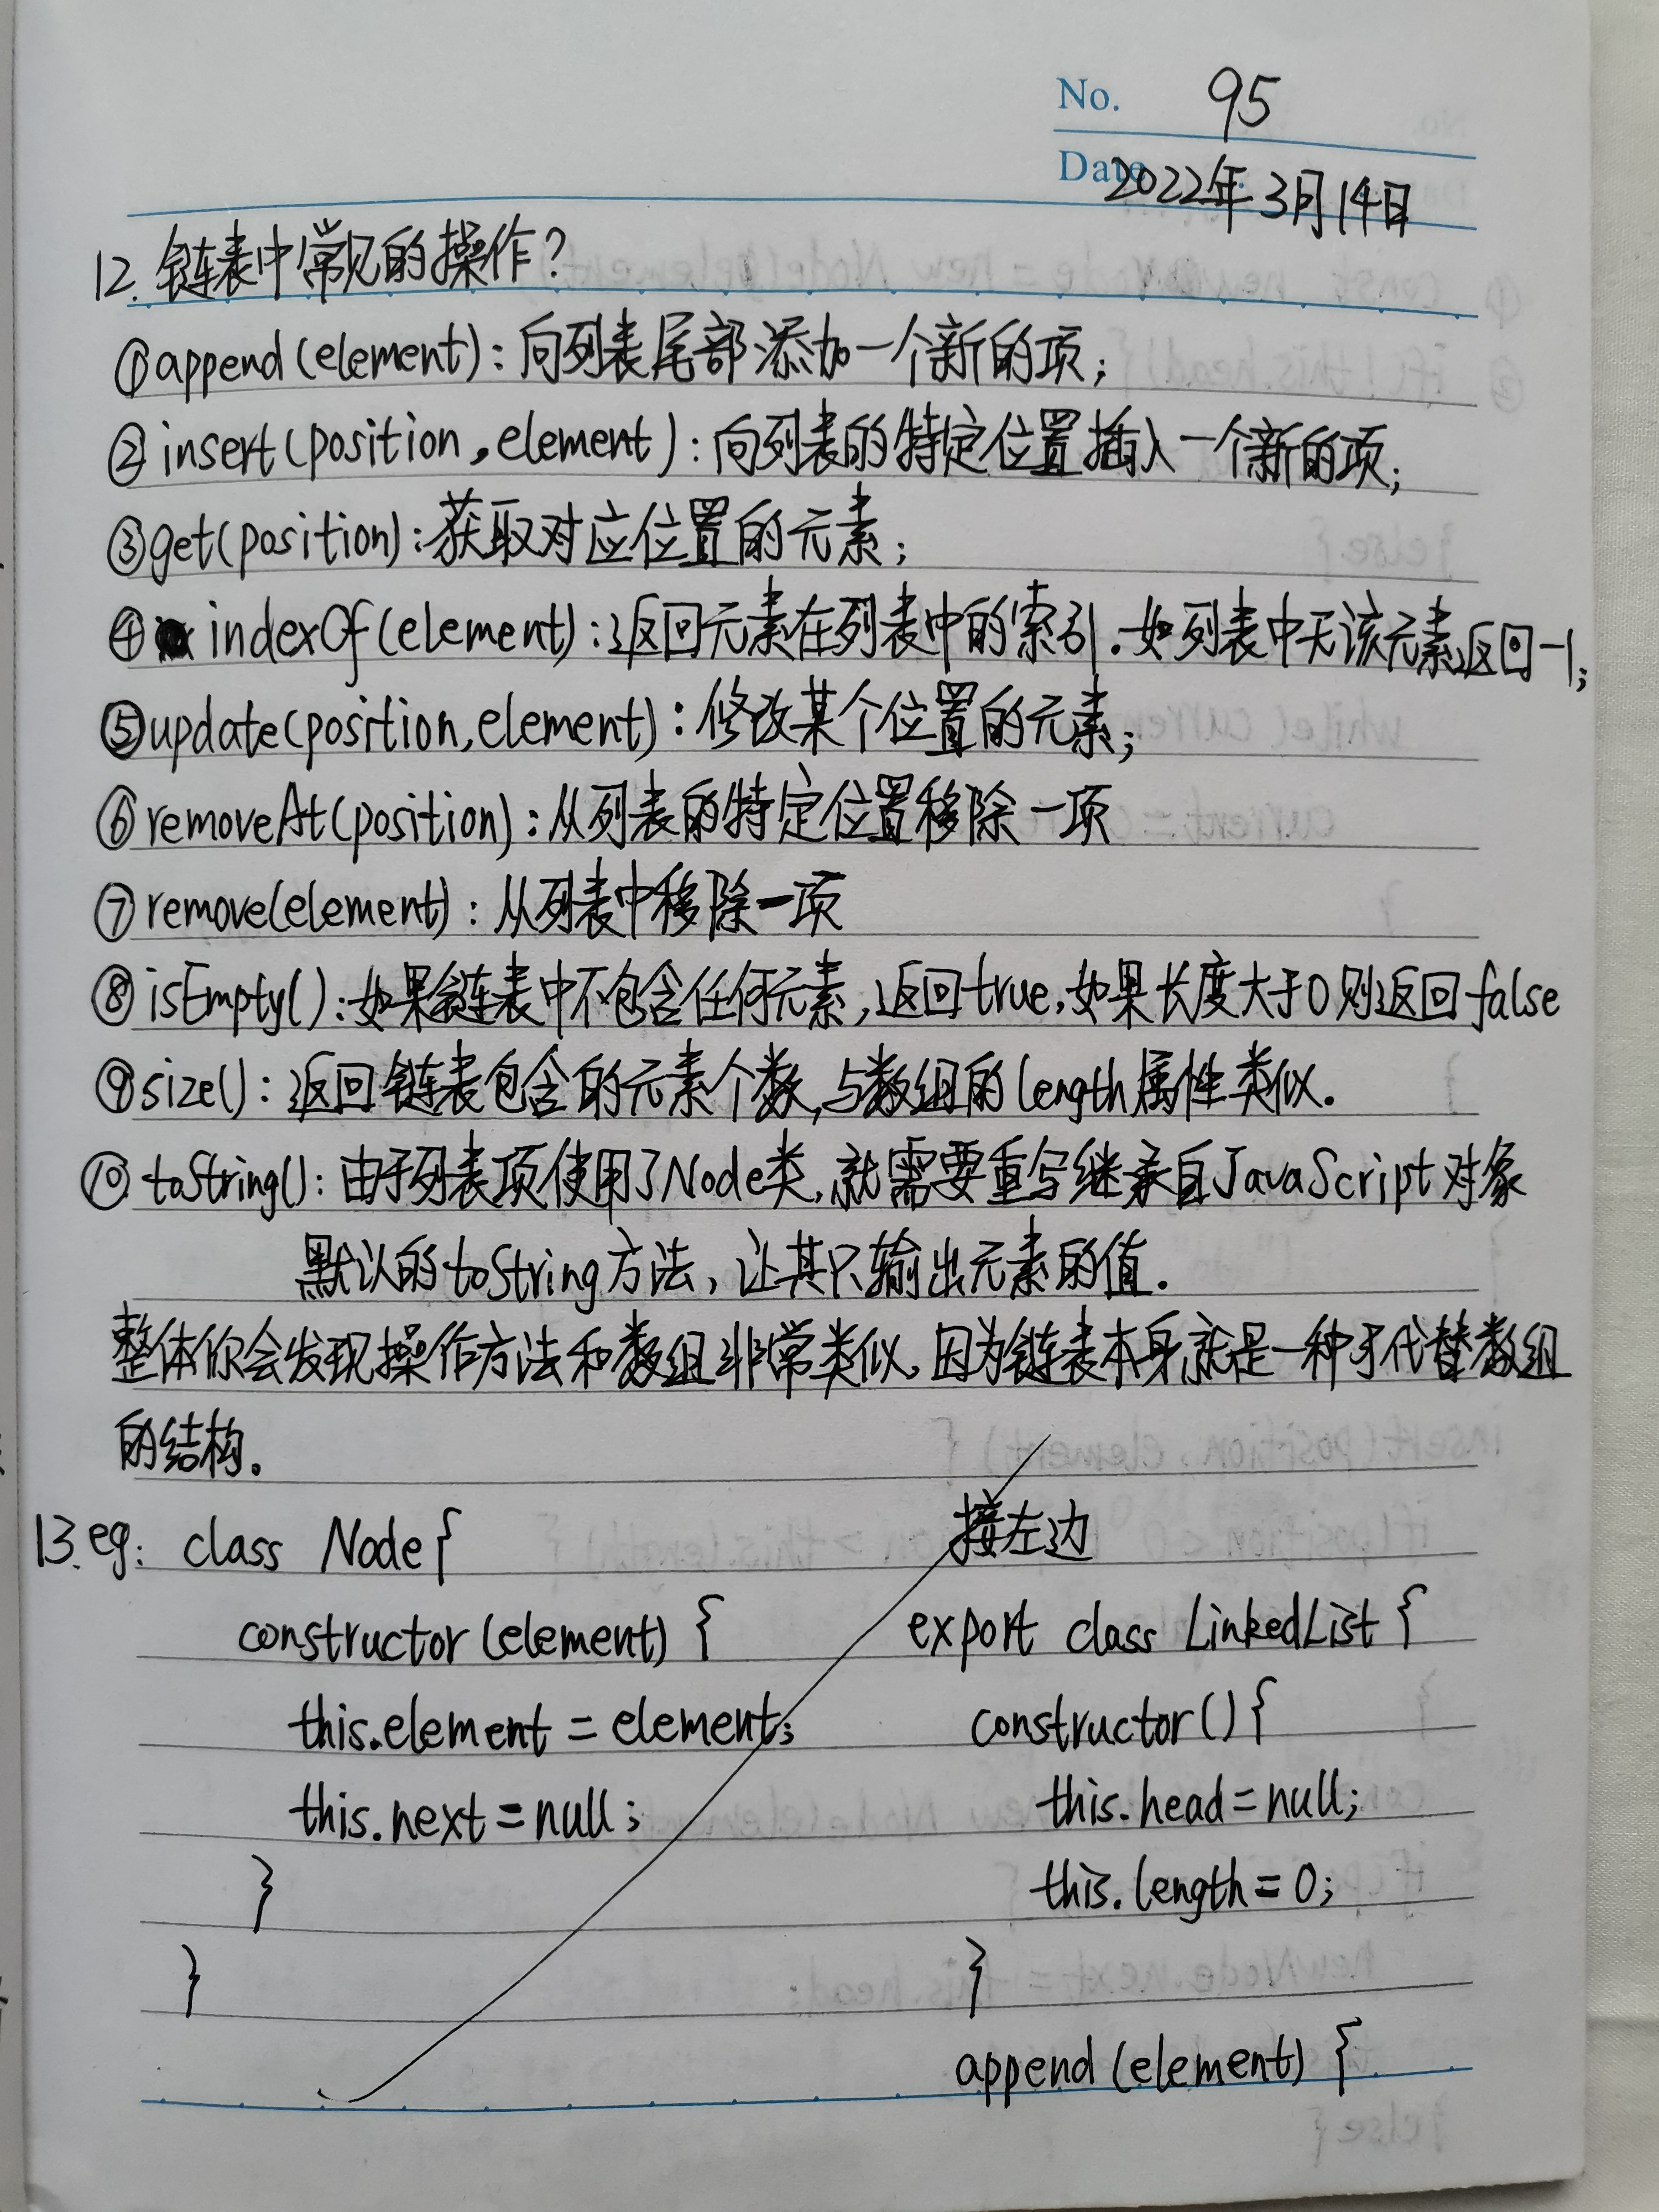 No. 95
Date 2022年3月14日
12. 链表中常见的操作?
①append(element):向列表尾部添加一个新的项;
②insert(position,element):向列表的特定位置插入一个新的项;
③get(position):获取对应位置的元素;
④indexOf(element):返回元素在列表中的索引.如列表中无该元素返回-1;
⑤update(position,element):修改某个位置的元素;
⑥removeAt(position):从列表的特定位置移除一项
⑦remove(element):从列表中移除一项
⑧isEmpty():如果链表中不包含任何元素,返回true,如果长度大于0则返回false
⑨size():返回链表包含的元素个数,与数组的length属性类似.
⑩toString():由于列表项使用了Node类,就需要重写继承自JavaScript对象
默认的toString方法,让其只输出元素的值.
整体你会发现操作方法和数组非常类似,因为链表本身就是一种于代替数组
的结构。
13.eg: class Node{
constructor(element) {
this.element = element;
this.next = null;
}
}
接左边
export class LinkedList {
constructor(){
this.head = null;
this.length = 0;
}
append(element) {